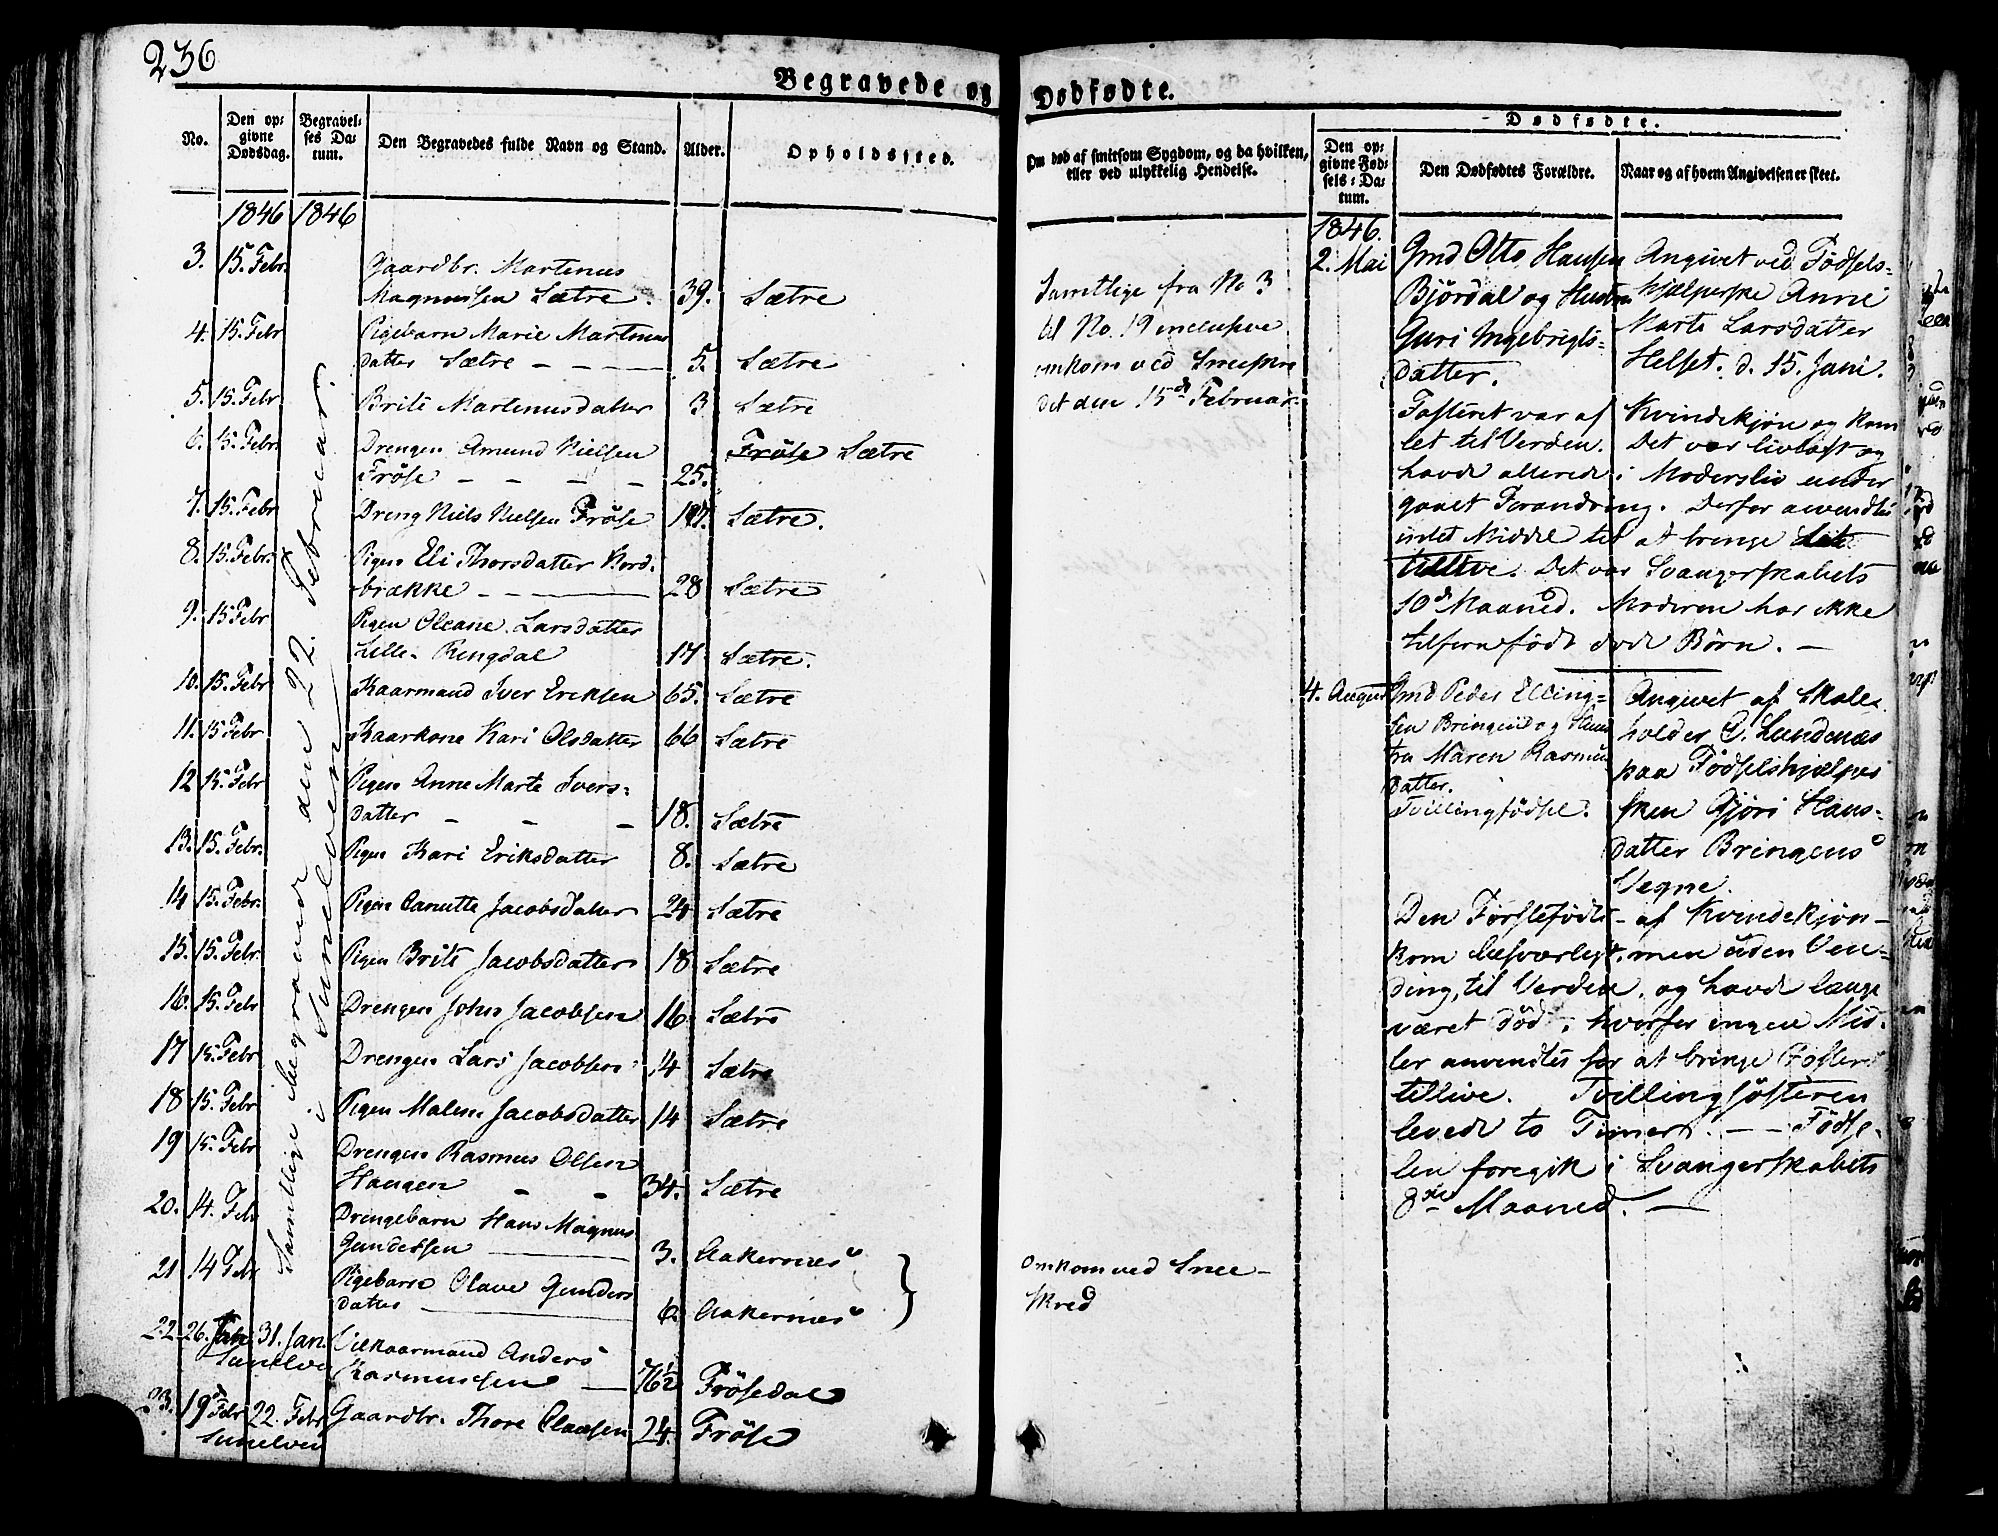 236
Begravede og Dødfødte.
No.
Den op-
givne
Dødsdag.
Begravel-
ses Da-
tum.
Den Begravedes fulde Navn og Stand.
Alder.
Opholdssted.
Om død af smitsom Sygdom, og da hvilken,
eller ved ulykkelig Hendelse.
Dødfødte.
Den op-
givne Fød-
sels-Da-
tum.
Den Dødfødtes Forældre.
Naar og af hvem Angivelsen er skeet.
1846 1846
Samtlige begravede den 22. Februar
i Sunelven
3. 15. Febr. Gaardbr. Martinus
Magnussen Sætre. 39. Sætre
4. 15. Febr Pigebarn Marie Martinus
datter Sætre - - - 5. Sætre
5. 15. Febr Brite Martinusdatter 3 Sætre
6. 15. Febr Drengen Amund Nielsen
Fröse - - - - 25. Fröse Sætre
7. 15. Febr Dreng Niels Nielsen Fröse 17. Sætre.
8. 15. Febr. Pigen Eli Thorsdatter Nord-
brække - 28 Sætre
9. 15 Febr Pigen Oleane Larsdatter
Lille-Ringdal 17 Sætre.
10. 15. Febr Kaarmand Iver Eriksen 65. Sætre
11. 15 Febr Kaarkone Kari Olsdatter 66 Sætre
12 15. Febr Pigen Anne Marte Ivers-
datter - - - 18. Sætre
13. 15. Febr. Pigen Kari Eriksdatter 8. Sætre
14 15. Febr. Pigen Canutte Jacobsdatter 24 Sætre
15. 15. Febr. Pigen Brite Jacobsdatter 18 Sætre
16. 15. Febr Drengen John Jacobsen 16 Sætre
17 15. Febr Drengen Lars Jacobsen 14 Sætre
18 15. Febr Pigen Malene Jacobsdatter 14 Sætre
19 15. Febr Drengen Rasmus Olsen
Haugen - - 34. Sætre
20. 14. Feb Drengebarn Hans Magnus
Gundersen 3. Aakernes
21 14 Febr Pigebarn Olave Gunders
datter 6. Aakernes
22 26. Jan 31. Jan. Vilkaarmand Anders
Sunelven Rasmussen 76 1/2 Frösedal
23. 19 Febr 22. Febr Gaardbr. Thore Claasen 24. Fröse
Sunelven
Samtlige fra No 3
til No. 19 inclusive
omkom ved Sneeskre
det den 15de Februar.
Omkom ved Snee-
skred
1846.
2. Mai Gmd Otto Hansen
Bjørdal og Hustru
Guri Ingebrigts-
datter.
Angivet ved Fødsels-
hjælperske Anne
Marte Larsdatter
Helset. d. 15. Juni.
Fosteret var af Kvindekjøn og kom
let til Verden. Det var livløst og
havde allerede i Modersliv under
gaaet Forandring. Derfor anvendtes
intet Middel til at bringe
tillive. Det var Svangerskabets
10de Maaned. Moderen har ikke
tilforn født døde Børn. -
4. August Gmd Peder Elling-
sen Bringen og Hus
tru Maren Rasmus
datter.
Tvillingfödsel.
Angivet af Skole-
holder C. Lundenæs
paa Fødselshjælper
sken Gjöri Hans-
datter Bringens
Vegne.
Den Førstefødte - af Kvindekjøn -
kom besværligt, men uden Ven-
ding, til Verden, og havde længe
været død, hvorfor ingen Mid-
ler anvendtes for at bringe Fosteret
tillive. Tvillingsøsteren
levede to Timer. - - Fødse-
len foregik i Svangerskabets
8de Maaned. -